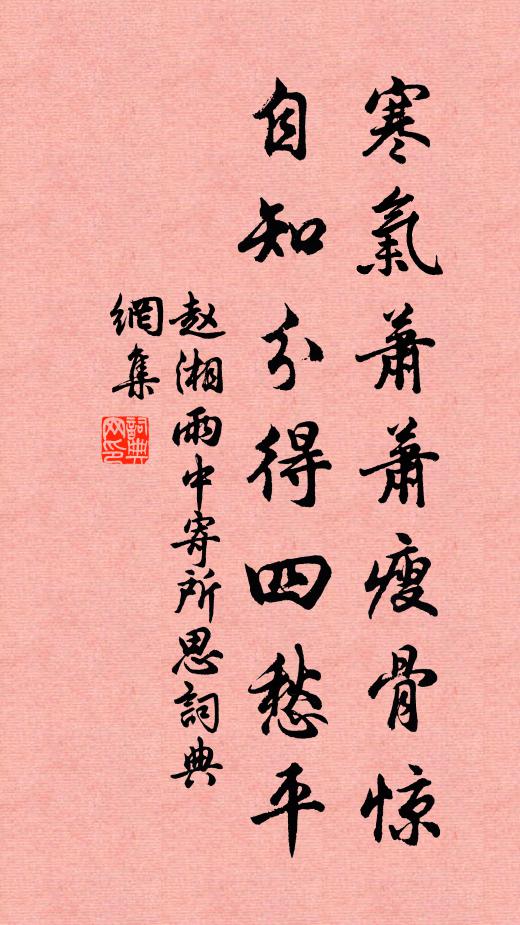 寒氣蕭蕭瘦骨惊
自知分得四愁平
赵湘雨中寄所思詞典
網集
詞典網印